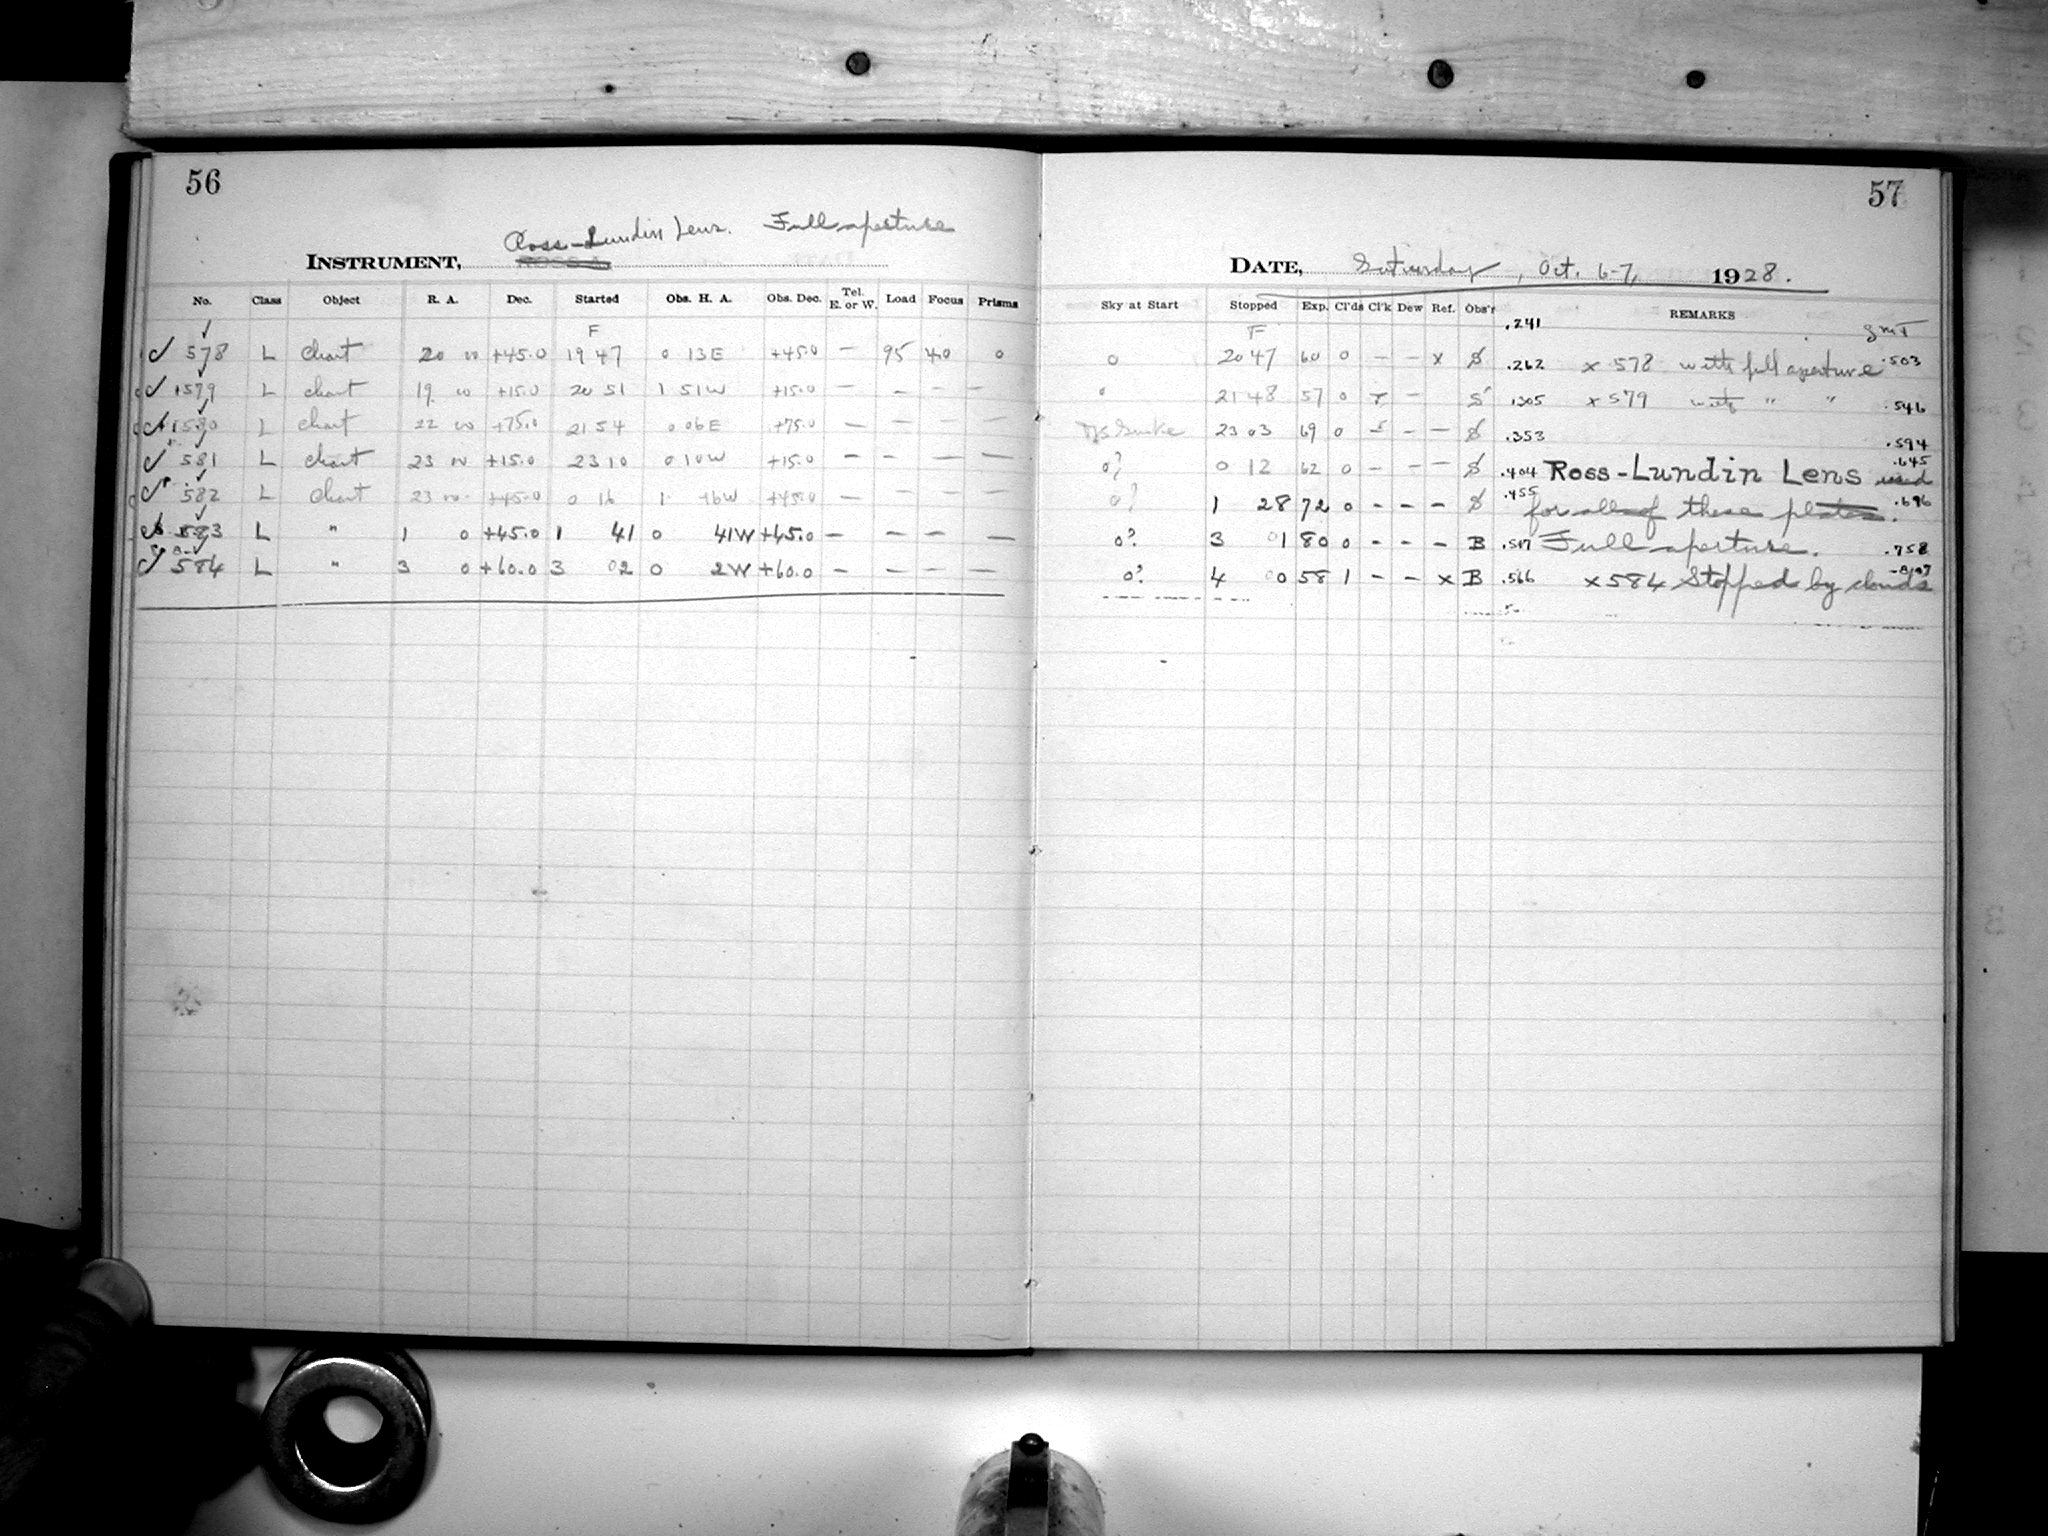 56
Ross-Lundin Lens. Full aperture
INSTRUMENT,
No. Class Object R. A. Dec. Started Obs. H. A. Obs. Dec. Tel. E. or W. Load Focus Prisms
F
578 L chart 20 +45.0 19 47 0 13E +45.0 — 95 40 0
579 L chart 19 +15.0 20 51 1 51W +15.0 — — — —
L chart 22 +75.0 21 54 0 06E +75.0 — — — —
581 L chart 23 +15.0 23 10 0 10W +15.0 — — — —
582 L chart 23 +45.0 0 16 1 16W +45.0 — — — —
583 L " 1 0 +45.0 1 41 0 41W +45.0 — — — —
584 L " 3 0 +60.0 3 02 0 2W +60.0 — — — —
57
DATE, Saturday, Oct. 6-7, 1928.
Sky at Start Stopped Exp. Cl'ds Cl'k Dew Ref. Obs'r REMARKS
F .241 GMT
0 20 47 60 0 – – x S .262 x 578 with full aperture .503
0 21 48 57 0 – S .305 x 579 with " " .546
23 03 69 0 – – S .353 .594
0? 0 12 62 0 – – – S .404 Ross-Lundin Lens used .645
0? 1 28 72 0 – – – S .455 for all of these plates. .696
0? 3 01 80 0 – – – B .517 Full aperture. .758
0? 4 00 58 1 – – x B .566 x 584 Stopped by clouds